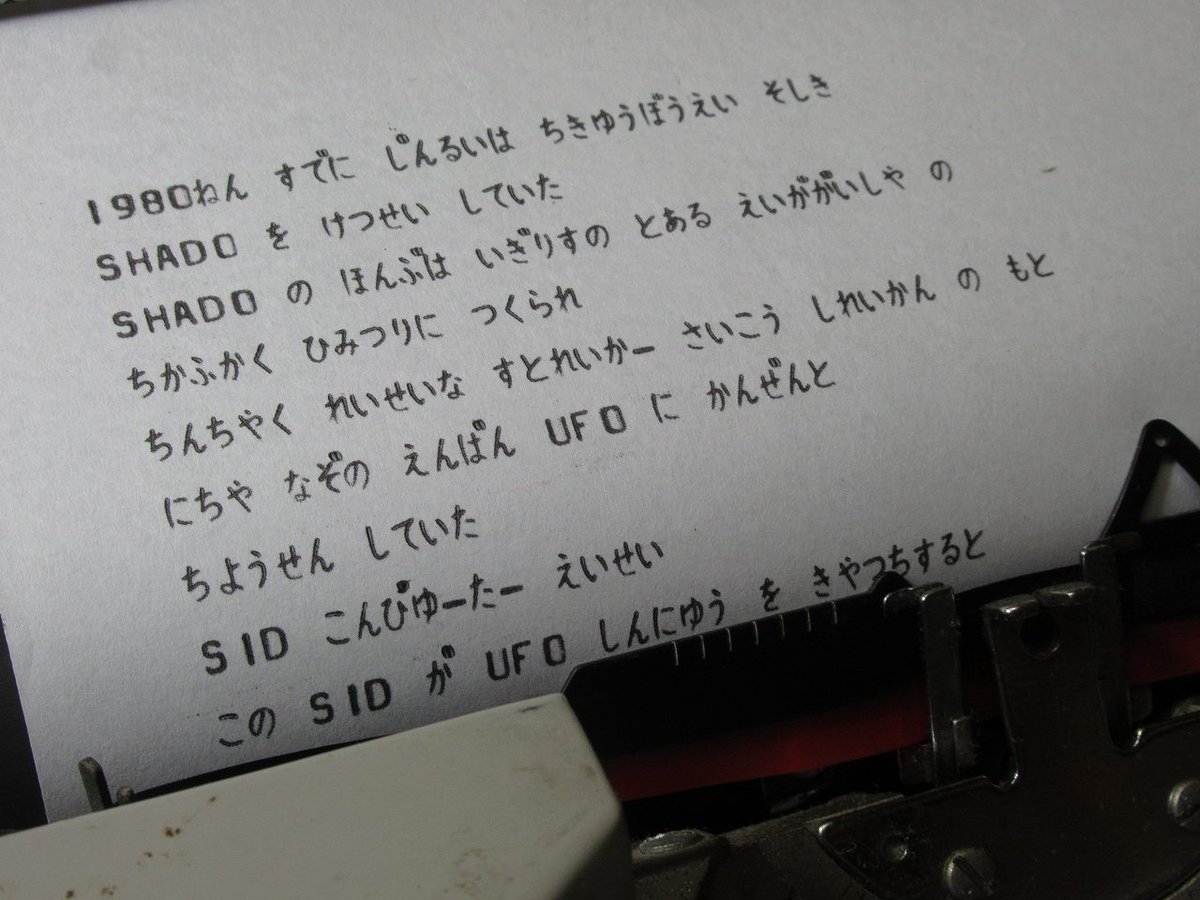 1980ねん すでに じんるいは ちきゆうぼうえい そしき
SHADO を けつせい していた
SHADO の ほんぶは いぎりすの とある えいががいしや の
ちかふかく ひみつりに つくられ
ちんちやく れいせいな すとれいかー さいこう しれいかん の もと
にちや なぞの えんばん UFO に かんぜんと
ちようせん していた
SID こんぴゆーたー えいせい
この SID が UFO しんにゆう を きやつちすると